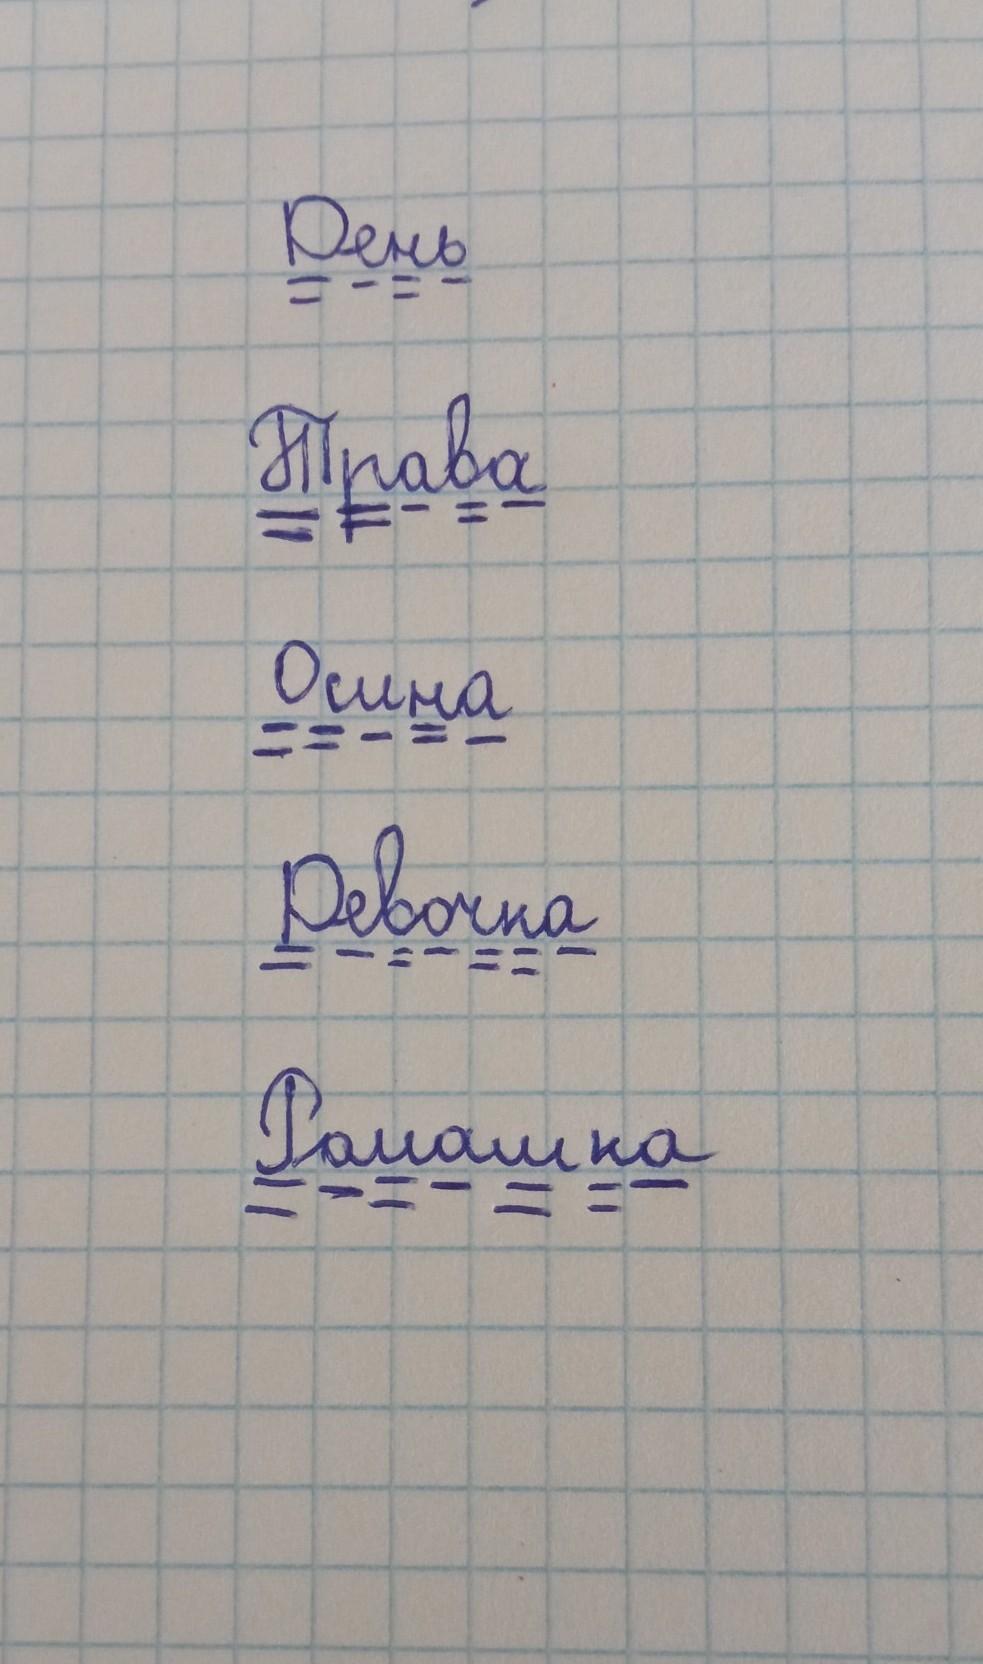 День
Трава
Осина
Девочка
Ромашка